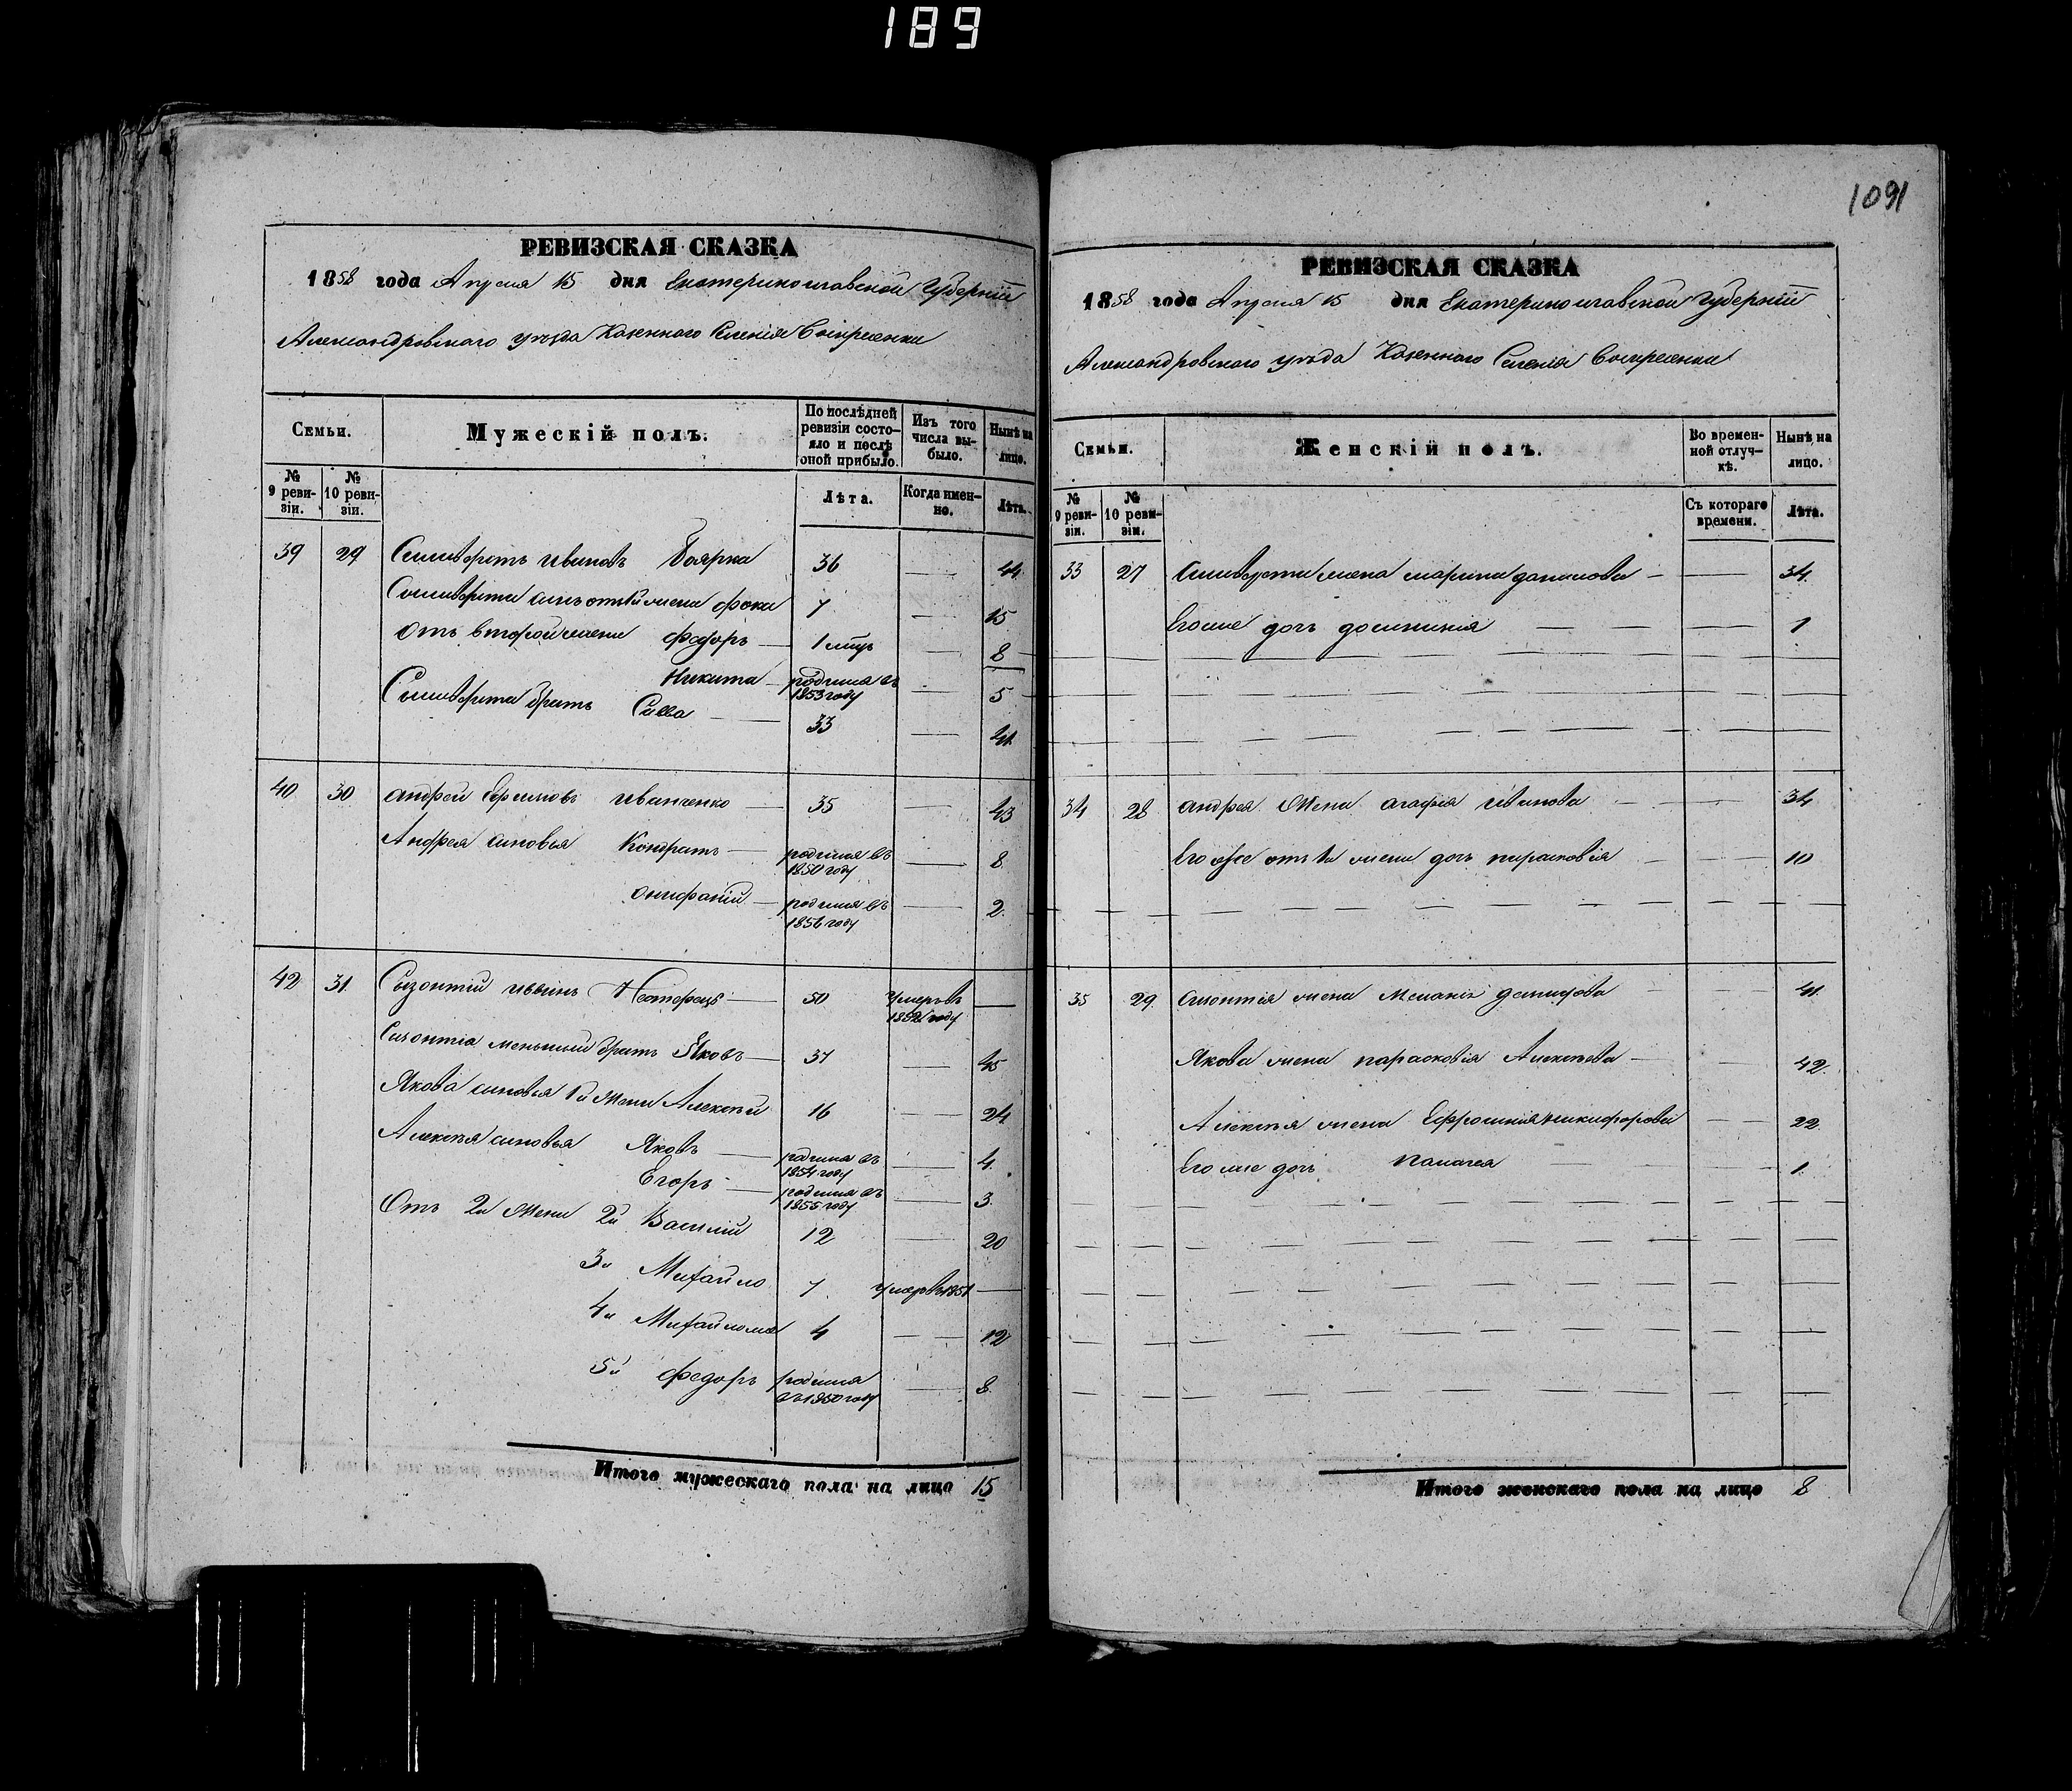 189
1091
РЕВИЗСКАЯ СКАЗКА
1858 года Апреля 15 дня Екатеринославской Губернiи
Александровскаго уезда Казеннаго Селенiя Воскресенки
Семьи.
Мужескій полъ.
По послѣдней ревизіи состояло и послѣ оной прибыло.
Изъ того числа выбыло.
Нынѣ на лицо.
№ 9 ревизіи.
№ 10 ревизіи.
Лѣта.
Когда именно.
Лѣта.
39 29 Ивановъ Боярка 36 — 44
фока 7 — 15
Отъ второй жени федоръ — 1 — 8
Никита — родился въ 1853 году — 5
братъ Савва — 33 — 41
40 30 андрей Ефимовъ иванченко — 35 — 43
Андрея синовья Кондратъ — родился въ 1850 году — 8
онифрій — родился въ 1856 году — 2
42 31 50 умеръ въ году —
меньший братъ Яковъ — 37 — 45
Якова синовья 1й жени Алексѣй 16 — 24
Алексѣя синовья Яковъ — родился въ 1854 году — 4
Егоръ — родился въ 1855 году — 3
Отъ 2й жени 2й Василій 12 — 20
3й Михайло 7 умеръ 1851 —
4й 4 — 12
5й федоръ родился въ 1850 году — 8
Итого мужескаго пола на лицо 15
РЕВИЗСКАЯ СКАЗКА
1858 года Апреля 15 дня Екатеринославской Губернiи
Александровскаго уезда Казеннаго Селенiя Воскресенки
Семьи.
Женскій полъ.
Во временной отлучкѣ.
Нынѣ на лицо.
№ 9 ревизіи.
№ 10 ревизіи.
Съ котораго времени.
Лѣта.
33 27 жена марина — 34
Его же дочь — 1
34 28 андрея жена агафия иванова — 34
Его же отъ 1й жени дочь парасковія — 10
35 29 жена — 41
Якова жена парасковія Алексѣева — 42
Алексѣя жена никифорова — 22
Его же дочь палагея — 1
Итого женскаго пола на лицо 8